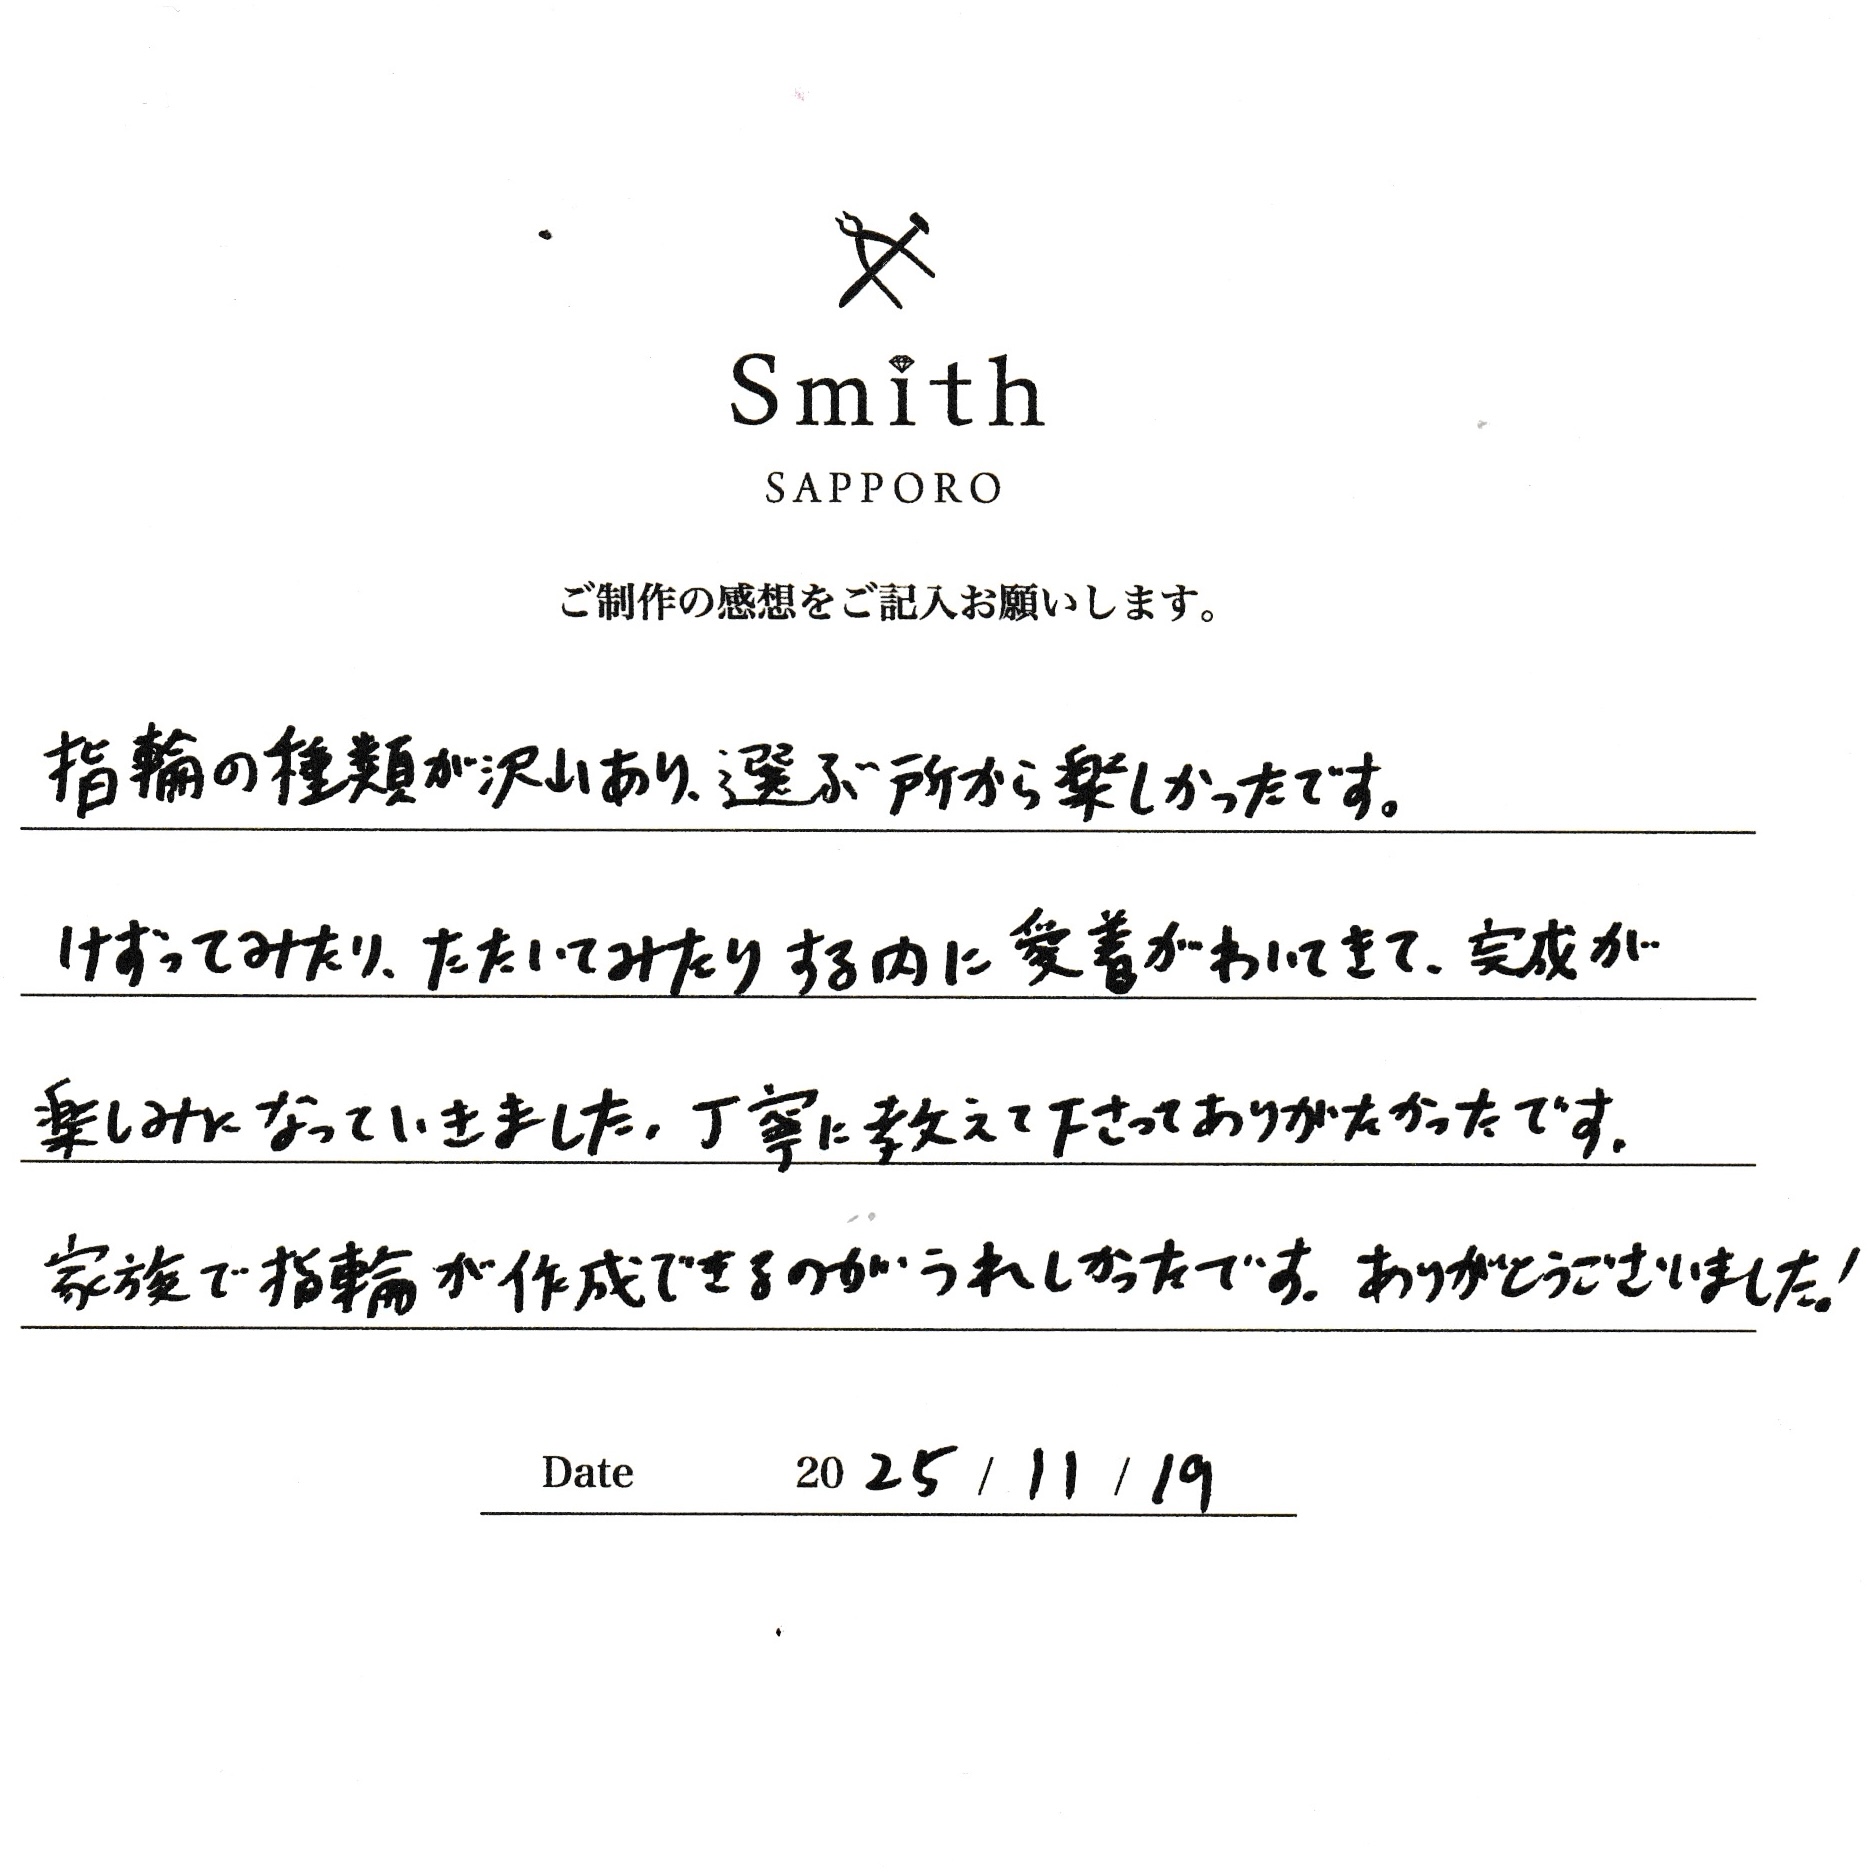 Smith
SAPPORO
ご制作の感想をご記入お願いします。
指輪の種類が沢山あり、選ぶ所から楽しかったです。
けずってみたり、たたいてみたりする内に愛着がわいてきて、完成が
楽しみになっていきました。丁寧に教えて下さってありがたかったです。
家族で指輪が作成できるのがうれしかったです。ありがとうございました!
Date 2025/11/19